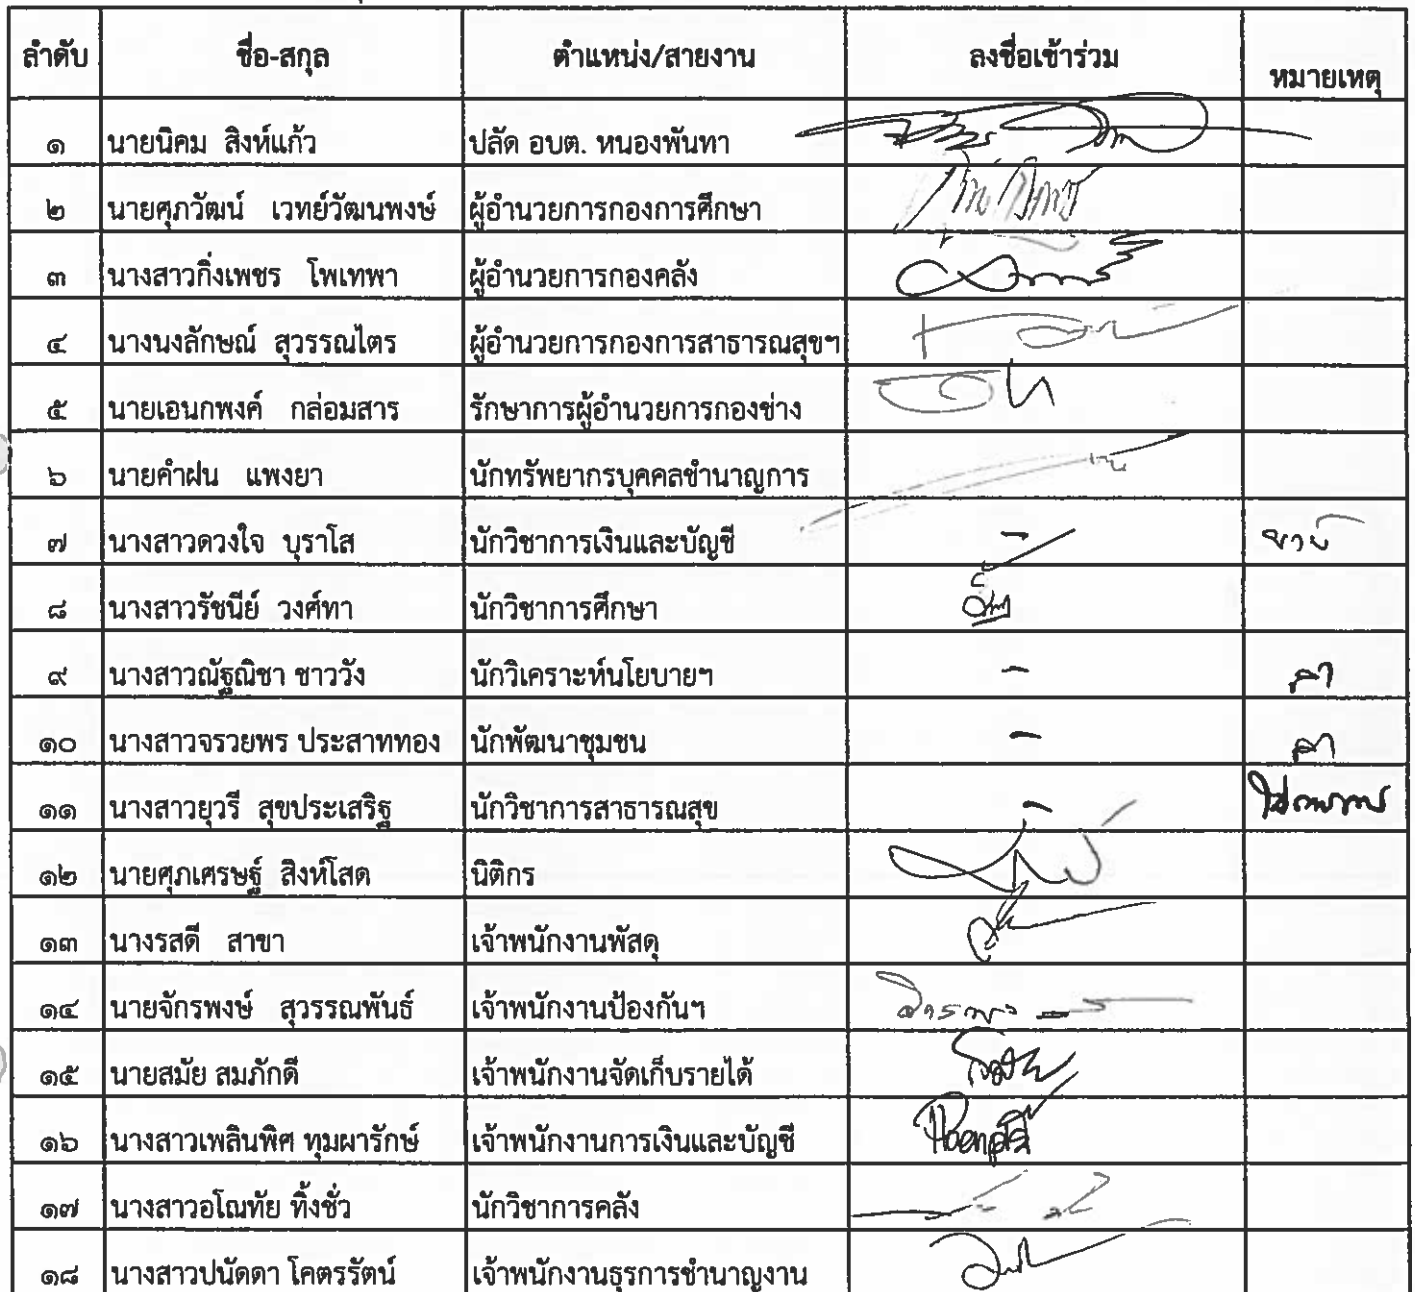 ลำดับ ชื่อ-สกุล ตำแหน่ง/สายงาน ลงชื่อเข้าร่วม หมายเหตุ
๑ นายนิคม สิงห์แก้ว ปลัด อบต. หนองพันทา
๒ นายศุภวัฒน์ เวทย์วัฒนพงษ์ ผู้อำนวยการกองการศึกษา
๓ นางสาวกิ่งเพชร โพเทพา ผู้อำนวยการกองคลัง
๔ นางนงลักษณ์ สุวรรณไตร ผู้อำนวยการกองการสาธารณสุขฯ
๕ นายเอนกพงค์ กล่อมสาร รักษาการผู้อำนวยการกองช่าง
๖ นายคำฝน แพงยา นักทรัพยากรบุคคลชำนาญการ
๗ นางสาวดวงใจ บุราโส นักวิชาการเงินและบัญชี -
๘ นางสาวรัชนีย์ วงศ์ทา นักวิชาการศึกษา
๙ นางสาวณัฐณิชา ชาววัง นักวิเคราะห์นโยบายฯ - ลา
๑๐ นางสาวจรวยพร ประสาททอง นักพัฒนาชุมชน - ลา
๑๑ นางสาวยุวรี สุขประเสริฐ นักวิชาการสาธารณสุข - ไปราชการ
๑๒ นายศุภเศรษฐ์ สิงห์โสด นิติกร
๑๓ นางรสดี สาขา เจ้าพนักงานพัสดุ
๑๔ นายจักรพงษ์ สุวรรณพันธ์ เจ้าพนักงานป้องกันฯ
๑๕ นายสมัย สมภักดี เจ้าพนักงานจัดเก็บรายได้
๑๖ นางสาวเพลินพิศ ทุมผารักษ์ เจ้าพนักงานการเงินและบัญชี
๑๗ นางสาวอโณทัย ทิ้งชั่ว นักวิชาการคลัง
๑๘ นางสาวปนัดดา โคตรรัตน์ เจ้าพนักงานธุรการชำนาญงาน